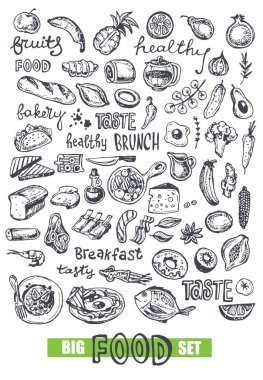 fruits
healthy
FOOD
bakery
TASTE
healthy BRUNCH
Breakfast
tasty
TASTE
BIG FOOD SET